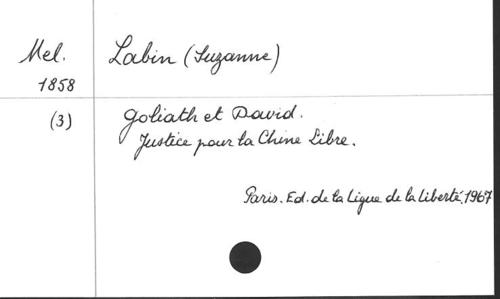 Mel. Labin (Suzanne)
1858
(3) Goliath et David.
Justice pour la Chine Libre.
Paris. Ed. de la Ligue de la Liberté, 1967